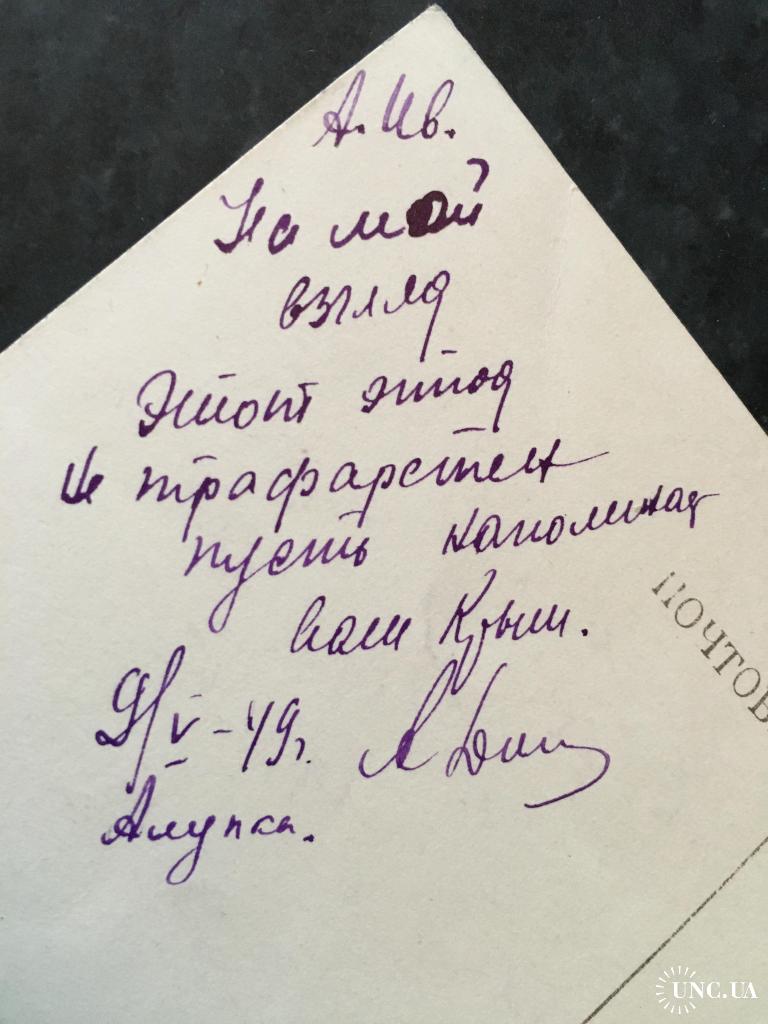 А. Ив.
На мой
взгляд
Этот этюд
не трафаретен
пусть напоминает
вам Крым.
9/V-49г.
Алупка.
ПОЧТОВ
UNC.UA